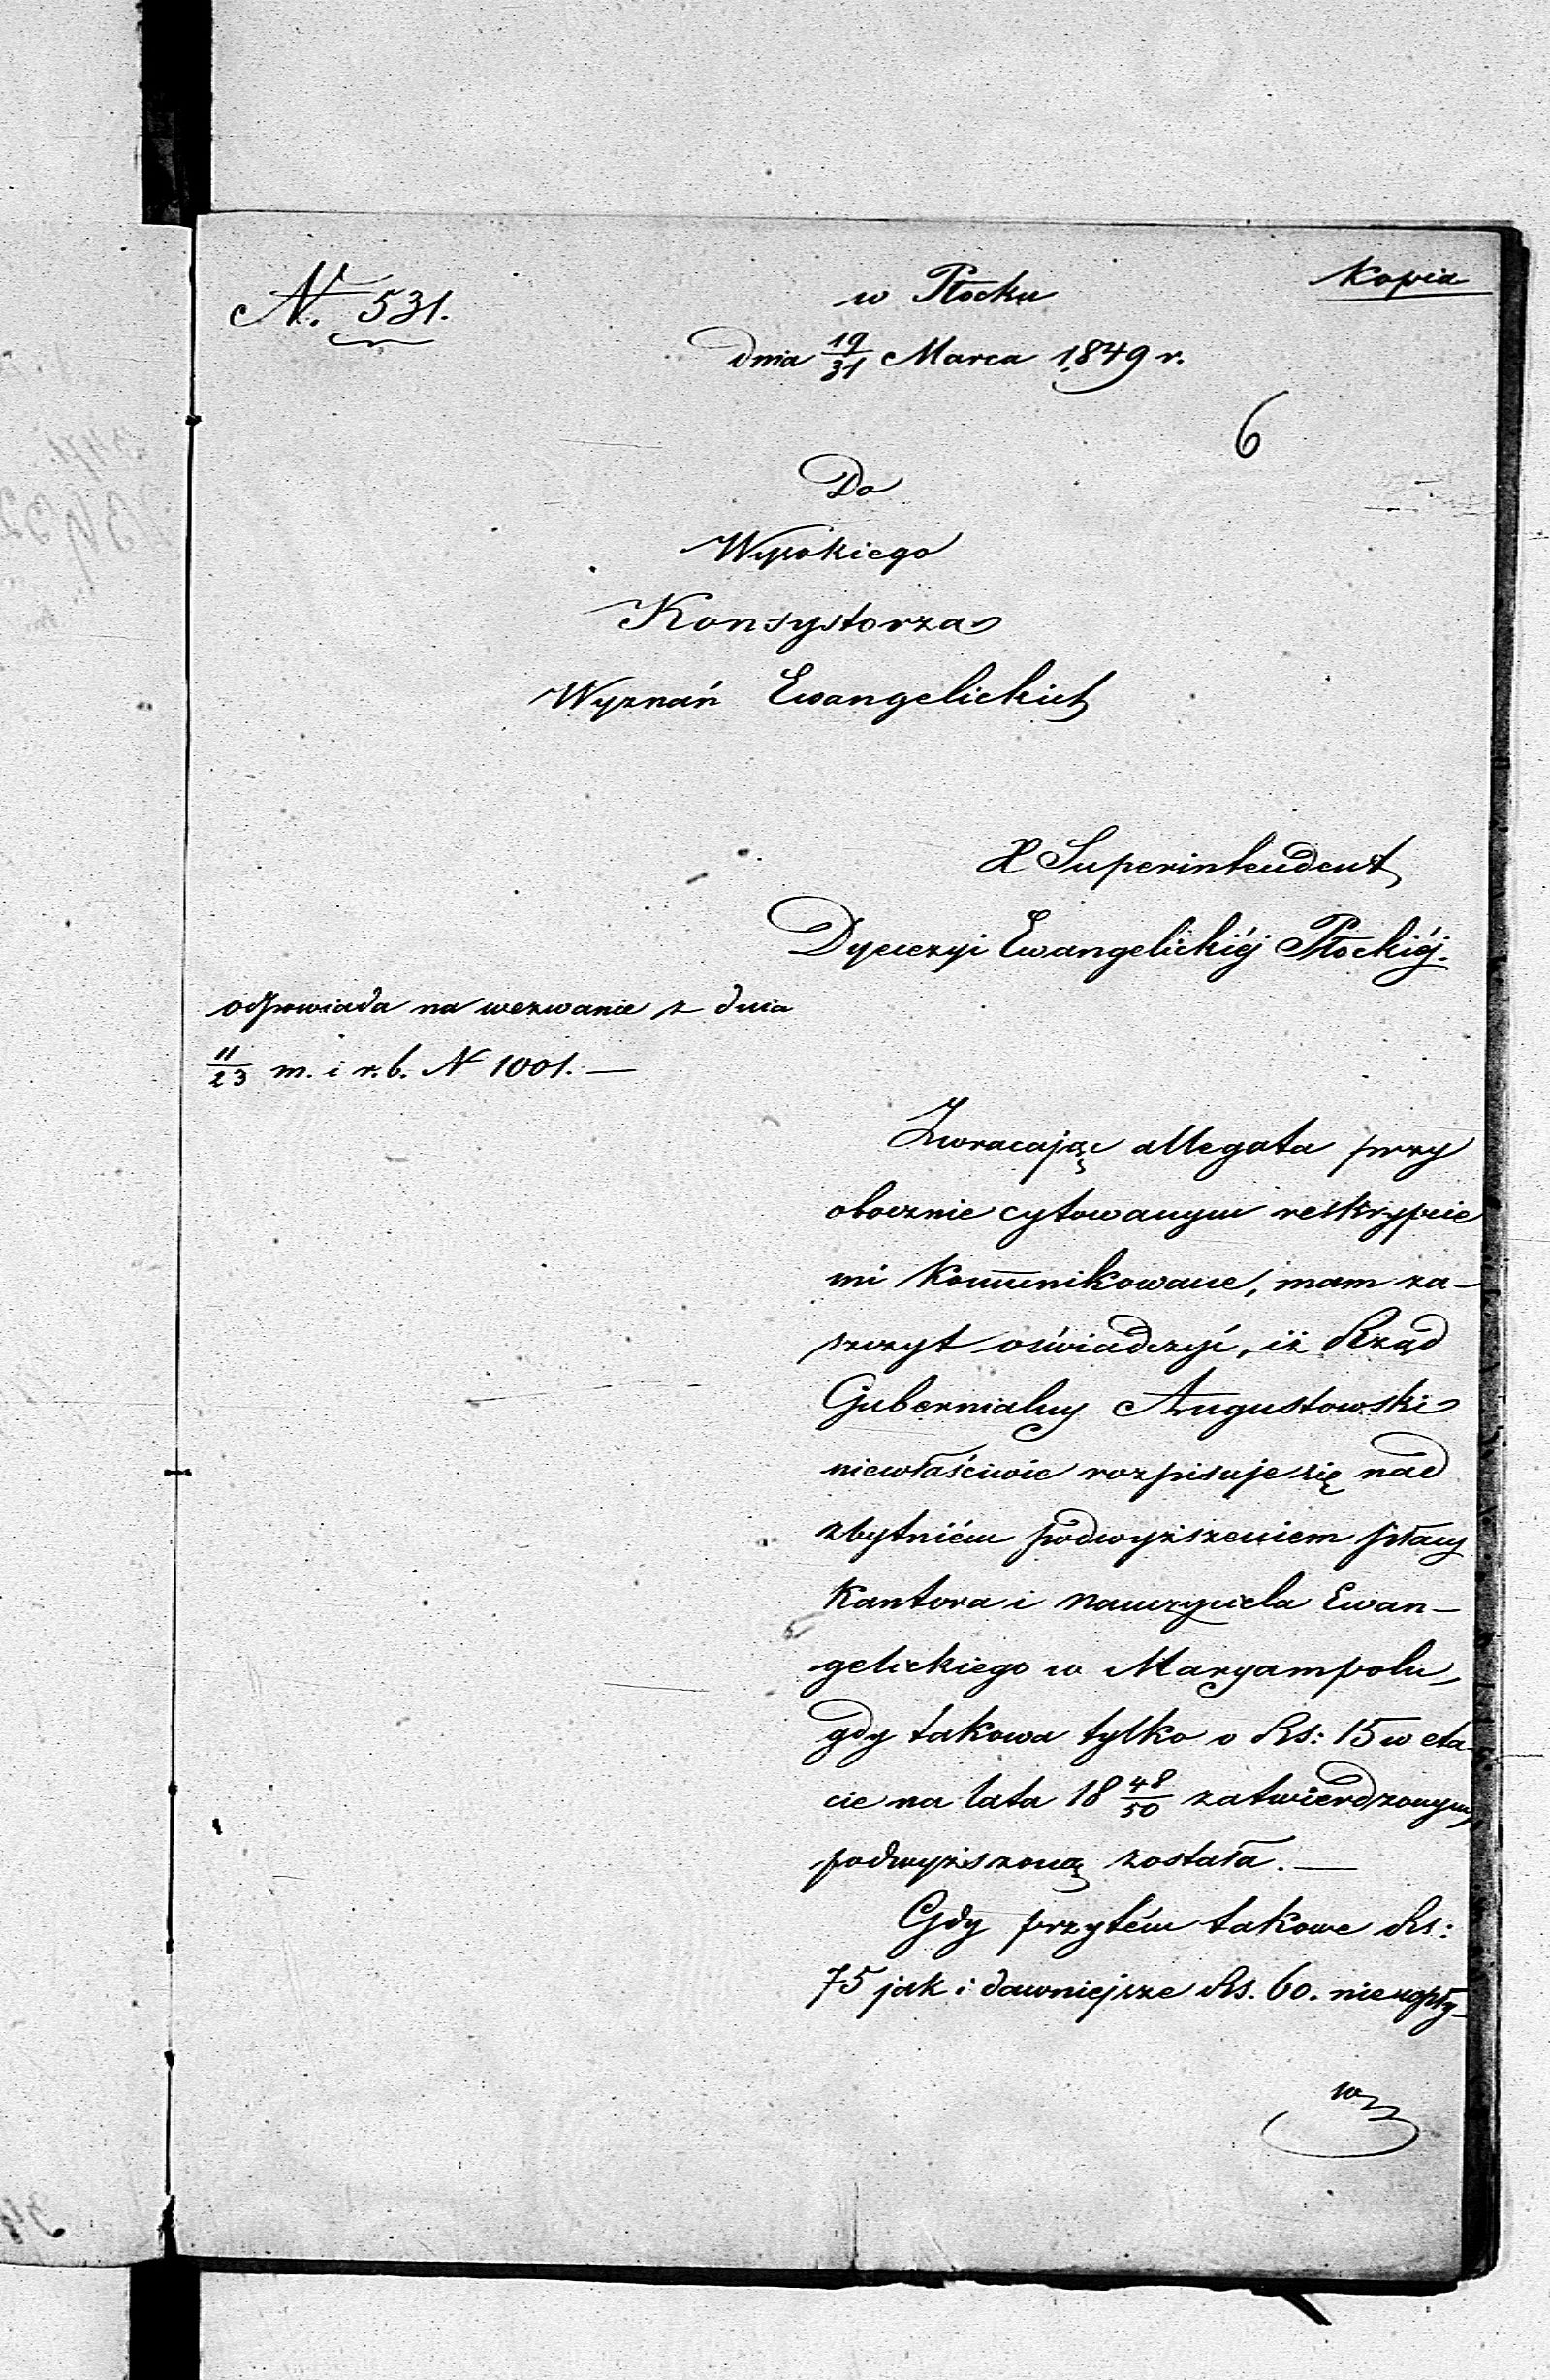 Kopia
N. 531.
w Płocku
dnia 19/31 Marca 1849 r.
6
Do
Wysokiego
Konsystorza
Wyznań Ewangelickich
X Superintendent
Dyecezyi Ewangelickiéj Płockiéj.
odpowiada na wezwanie z dnia
11/23 m. i r. b. N 1001. —
Zwracając allegata przy
obocznie cytowanym reskrypcie
mi kom̅unikowane, mam za-
szczyt oświadczyć, iż Rząd
Gubernialny Augustowski
niewłaściwie rozpisuje się nad
zbytniém podwyższeniem płacy
Kantora i nauczyciela Ewan-
gelickiego w Maryampolu,
gdy takowa tylko o Rs: 15 w eta-
cie na lata 18 48/50 zatwierdzonym,
podwyższoną została. —
Gdy przytém takowe Rs:
75 jak i dawniejsze Rs. 60. niewpły-
wa